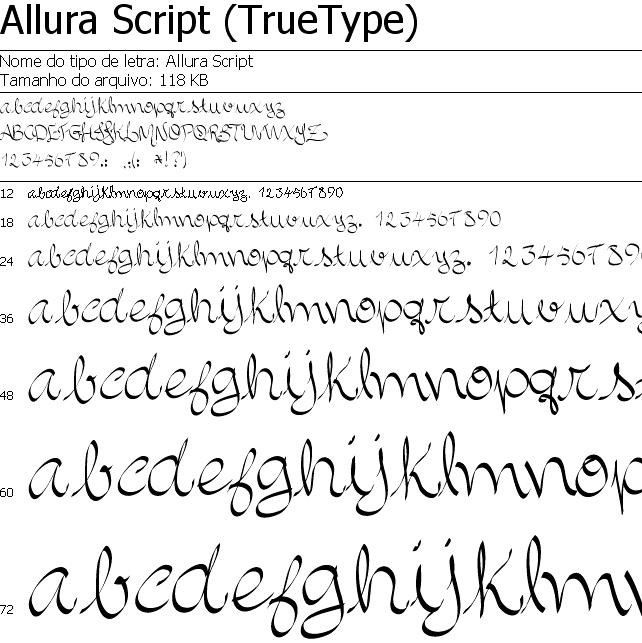 Allura Script (TrueType)
Nome do tipo de letra: Allura Script
Tamanho do arquivo: 118 KB
abcdefghijklmnopqrstuvwxyz
ABCDEFGHIJKLMNOPQRSTUVWXYZ
123456789.: ,;(: *!?')
12 abcdefghijklmnopqrstuvwxyz. 1234567890
18 abcdefghijklmnopqrstuvwxyz. 1234567890
24 abcdefghijklmnopqrstuvwxyz. 1234567890
36 abcdefghijklmnopqrstuvwxy
48 abcdefghijklmnopqrs
60 abcdefghijklmnop
72 abcdefghijklmn